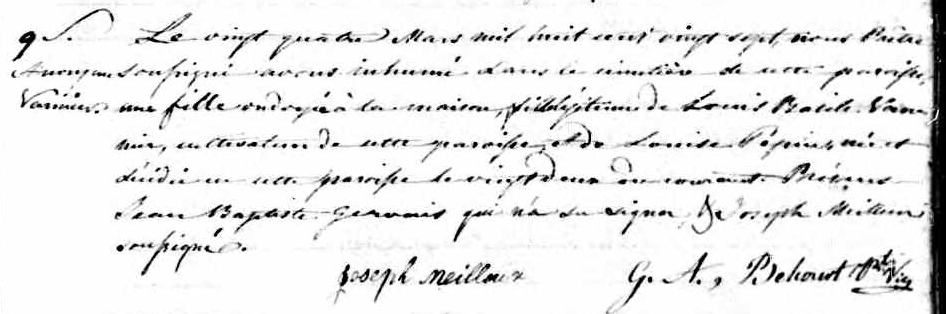 9 S. Le vingt quatre Mars mil huit cent vingt sept, nous Prêtre
Anonyme soussigné avons inhumé dans le cimetière de cette paroisse,
Varinier. une fille ondoyée à la maison, fille légitime de Louis Basile Vari-
nier, cultivateur de cette paroisse, et de Louise Pepin, née et
décédée en cette paroisse le vingt deux du courant. Présens
Jean Baptiste Gervais qui n'a su signer, & Joseph Meilleur
soussigné.
Joseph Meilleur G. A. Belcourt Ptr Vic